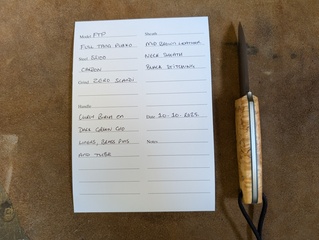 Model FTP
FULL TANG PUUKO
Steel 5100
CARBON
Grind ZERO SCANDI
Handle
CURLY BIRCH ON
DARK GREEN G10
LINERS, BRASS PINS
AND TUBE
Sheath
MID BROWN LEATHER
NECK SHEATH
BLACK STITCHING
Date 20-10-2025
Notes